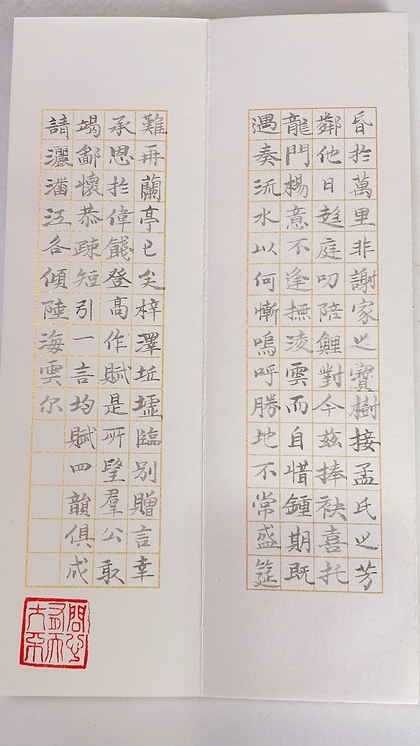 昏扵萬里非謝家之寶樹接孟氏之芳
鄰他日趍庭叨陪鯉對今茲捧袂喜托
龍門楊意不逢撫淩雲而自惜鍾期既
遇奏流水以何慚嗚呼勝地不常盛筵
難再蘭亭已矣梓澤坵墟臨別贈言幸
承恩扵偉餞登高作賦是所望羣公敢
竭鄙懷恭疎短引一言均賦四韻俱成
請灑潘江各傾陸海雲尔